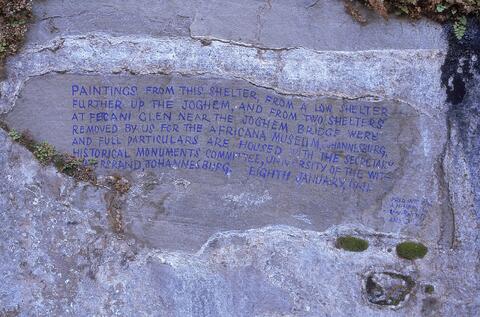 PAINTINGS FROM THIS SHELTER, FROM A LOW SHELTER
FURTHER UP THE JOGHEM, AND FROM TWO SHELTERS
AT FECANI GLEN NEAR THE JOGHEM BRIDGE WERE
REMOVED BY US FOR THE AFRICANA MUSEUM, JOHANNESBURG,
AND FULL PARTICULARS ARE HOUSED WITH THE SECRETARY
HISTORICAL MONUMENTS COMMITTEE, UNIVERSITY OF THE WIT-
WATERSRAND, JOHANNESBURG. EIGHTH JANUARY, 1931.